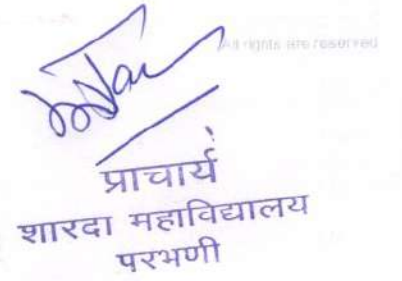 All rights are reserved
प्राचार्य
शारदा महाविद्यालय
परभणी